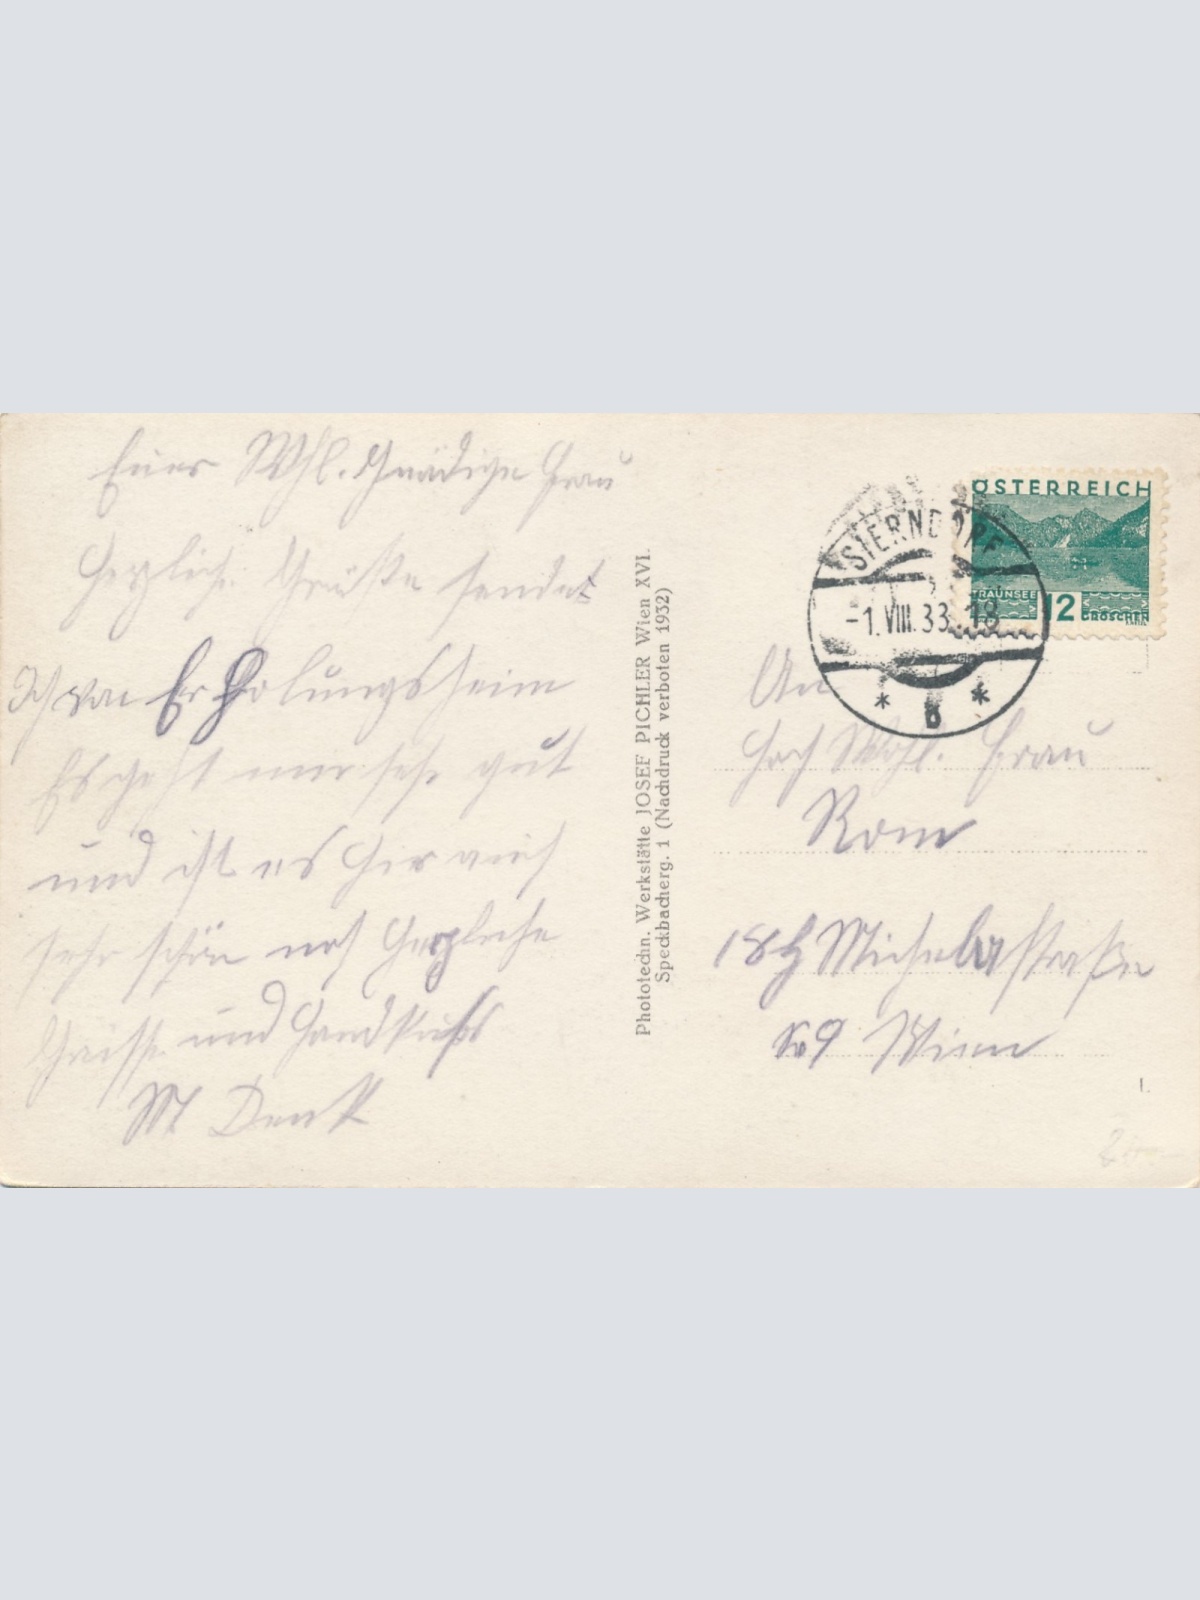 Euer Whl. Gnädige Frau
Herzliche Grüße sendet
Ich von Erholungsheim
Es geht mir sehr gut
und ist es hir auch
sehr schön noch Herzliche
Grüsse und Handkuss
M Denk
Phototechn. Werkstätte JOSEF PICHLER Wien XVI.
Speckbacherg. 1 (Nachdruck verboten 1932)
ÖSTERREICH
TRAUNSEE 12 GROSCHEN
SIERNDORF
-1.VIII.33 18
* *
An
Hoch Wohl. Frau
Rom
18
No 9 Wien